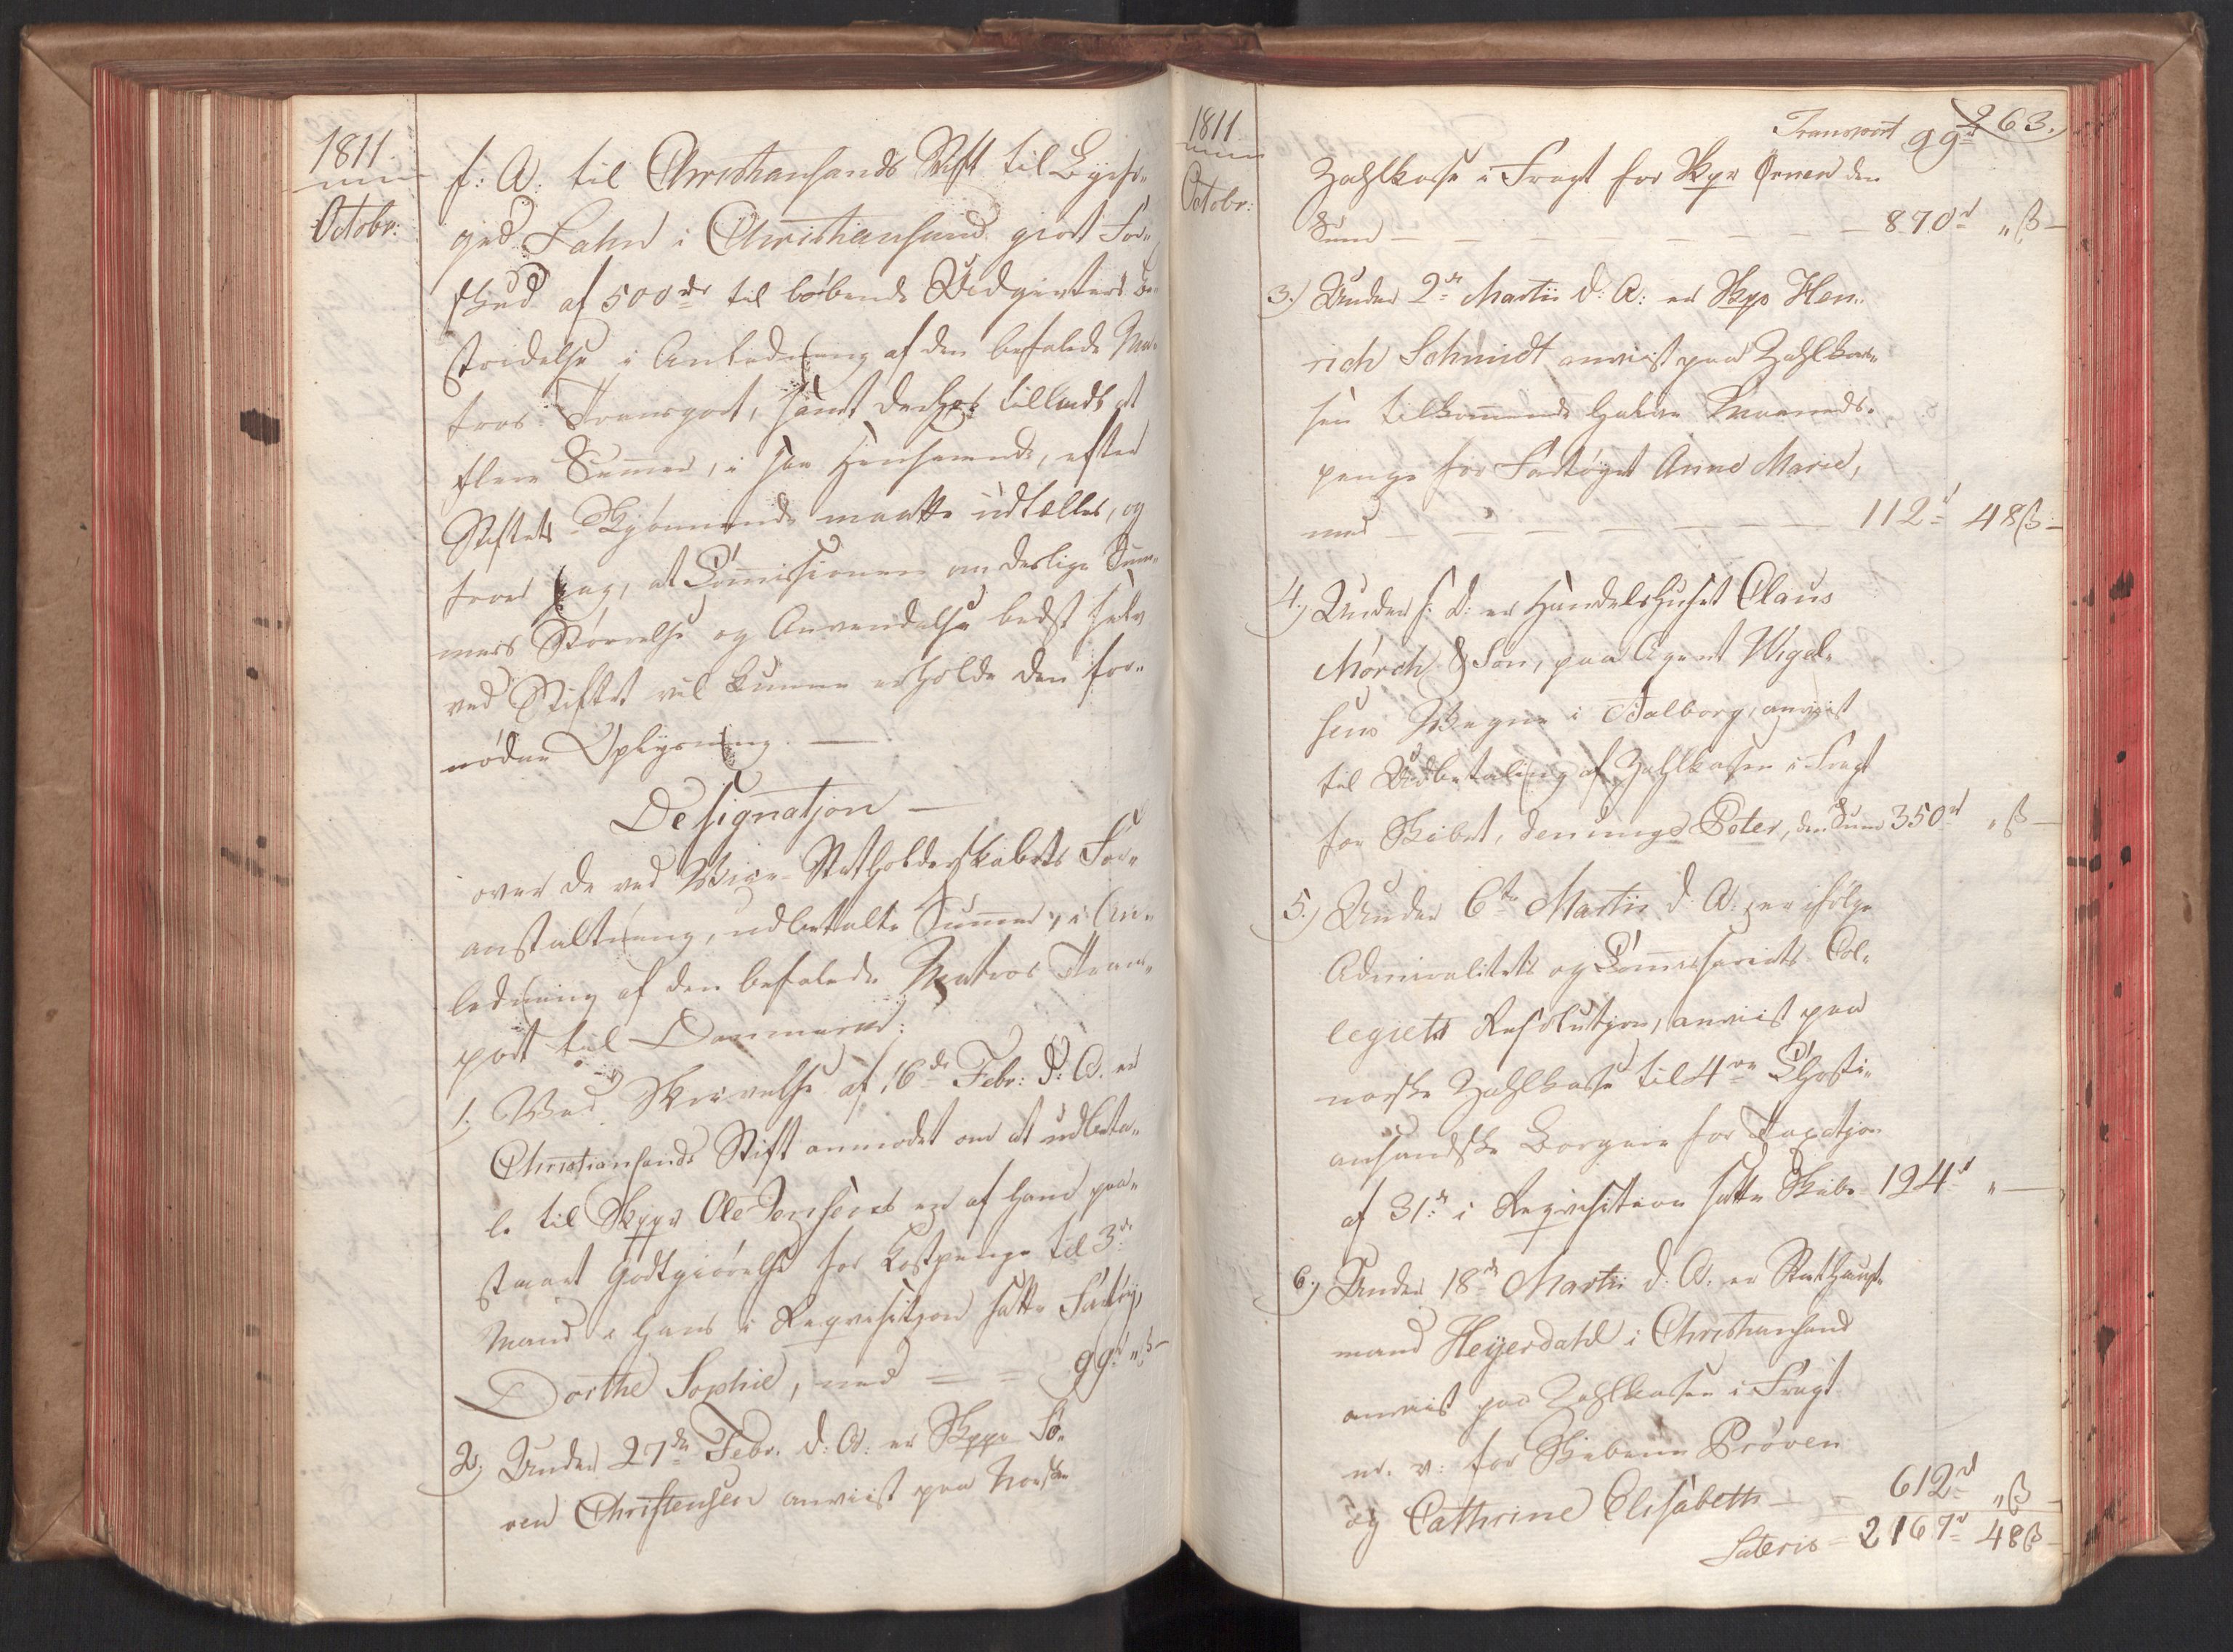 1811.
Octobr:
f: A: til Christiansands Stift til Byefo„
ged Lahn i Christiansand giort For„
skud af 500 rdr til løbende Udgivters Be„
stridelse i Anledning af den befalede Ma„
tros Transport, samt derhos tilladt at
flere Summer, i saa Henseende, efter
Stiftets Skjønnende maatte udtælles, og
troer jeg, at Commissionen om deslige Sum„
mers Størrelse og Anvendelse bedst selv
ved Stiftet vil kunne erholde den for„
nødne Oplysning. —
Designation —
over de ved Vice-Statholderskabets For„
anstaltning, udbetalte Summer, i An„
ledning af den befalede Matros Trans„
port til Danmark:
1, Ved Skrivelse af 16de Febr: d: A. er
Christiansands Stift anmodet om at udbeta„
le til Skppr Ole Jensen en af ham paa„
staaet Godtgiørelse for Kostpenge til 3de
Mand i hans i Reqvisition satte Fartøy,
Dorthe Sophie, med — — 99rd „ß —
2, Under 27de Febr. d: A: er Skppr Sø„
ren Christensen anviist paa Norske
1811
Octobr:
263.
Transport 99rd
Zahlkasse i Fragt for Skpr Ørnen den
Sum — — — — — — — — 870rd „ß —
3.) Under 2de Martii d: A: er Skpr Hen„
rich Schmidt anviist paa Zahlkas„
sen tilkommende halve Maaneds„
penge for Fartøyet Anne Marie,
med — — — — — — — 112rd 48ß —
4.) Under s: D: er Handelshuset Claus
Mørch & Søn, paa Agent Wigel„
sens Vegne i Aalborg, anviist
til Udbetaling af Zahlkassen i Fragt
for Skibet, den unge Peter, den Sum 350rd „ß —
5.) Under 6te Martii d: A: er ifølge
Admiralitets og Commissariats Col„
legiets Resolution, anviist paa
norske Zahlkasse til 4re Christi„
ansandske Borgere for Taxation
af 31te i Reqvisition satte Skibe 124rd „ —
6.) Under 18de Martii d: A: er Stathaupt„
mand Heyerdahl i Christiansand
anviist paa Zahlkassen i Fragt
m. v: for Skibene Prøven
og Cathrine Elisabeth — — 612rd „ß —
Lateris — 2167rd 48ß —